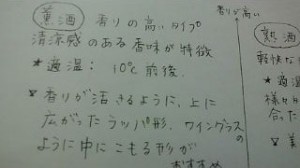 薫酒 香りの高いタイプ
清涼感のある香味が特徴
* 適温： 10℃前後.
* 香りが活きるように、上に
広がったラッパ形. ワイングラスの
ように中にこもる形が
おすすめ
香りが高い
熟酒
軽快な
* 適温
様々
合った
* 美